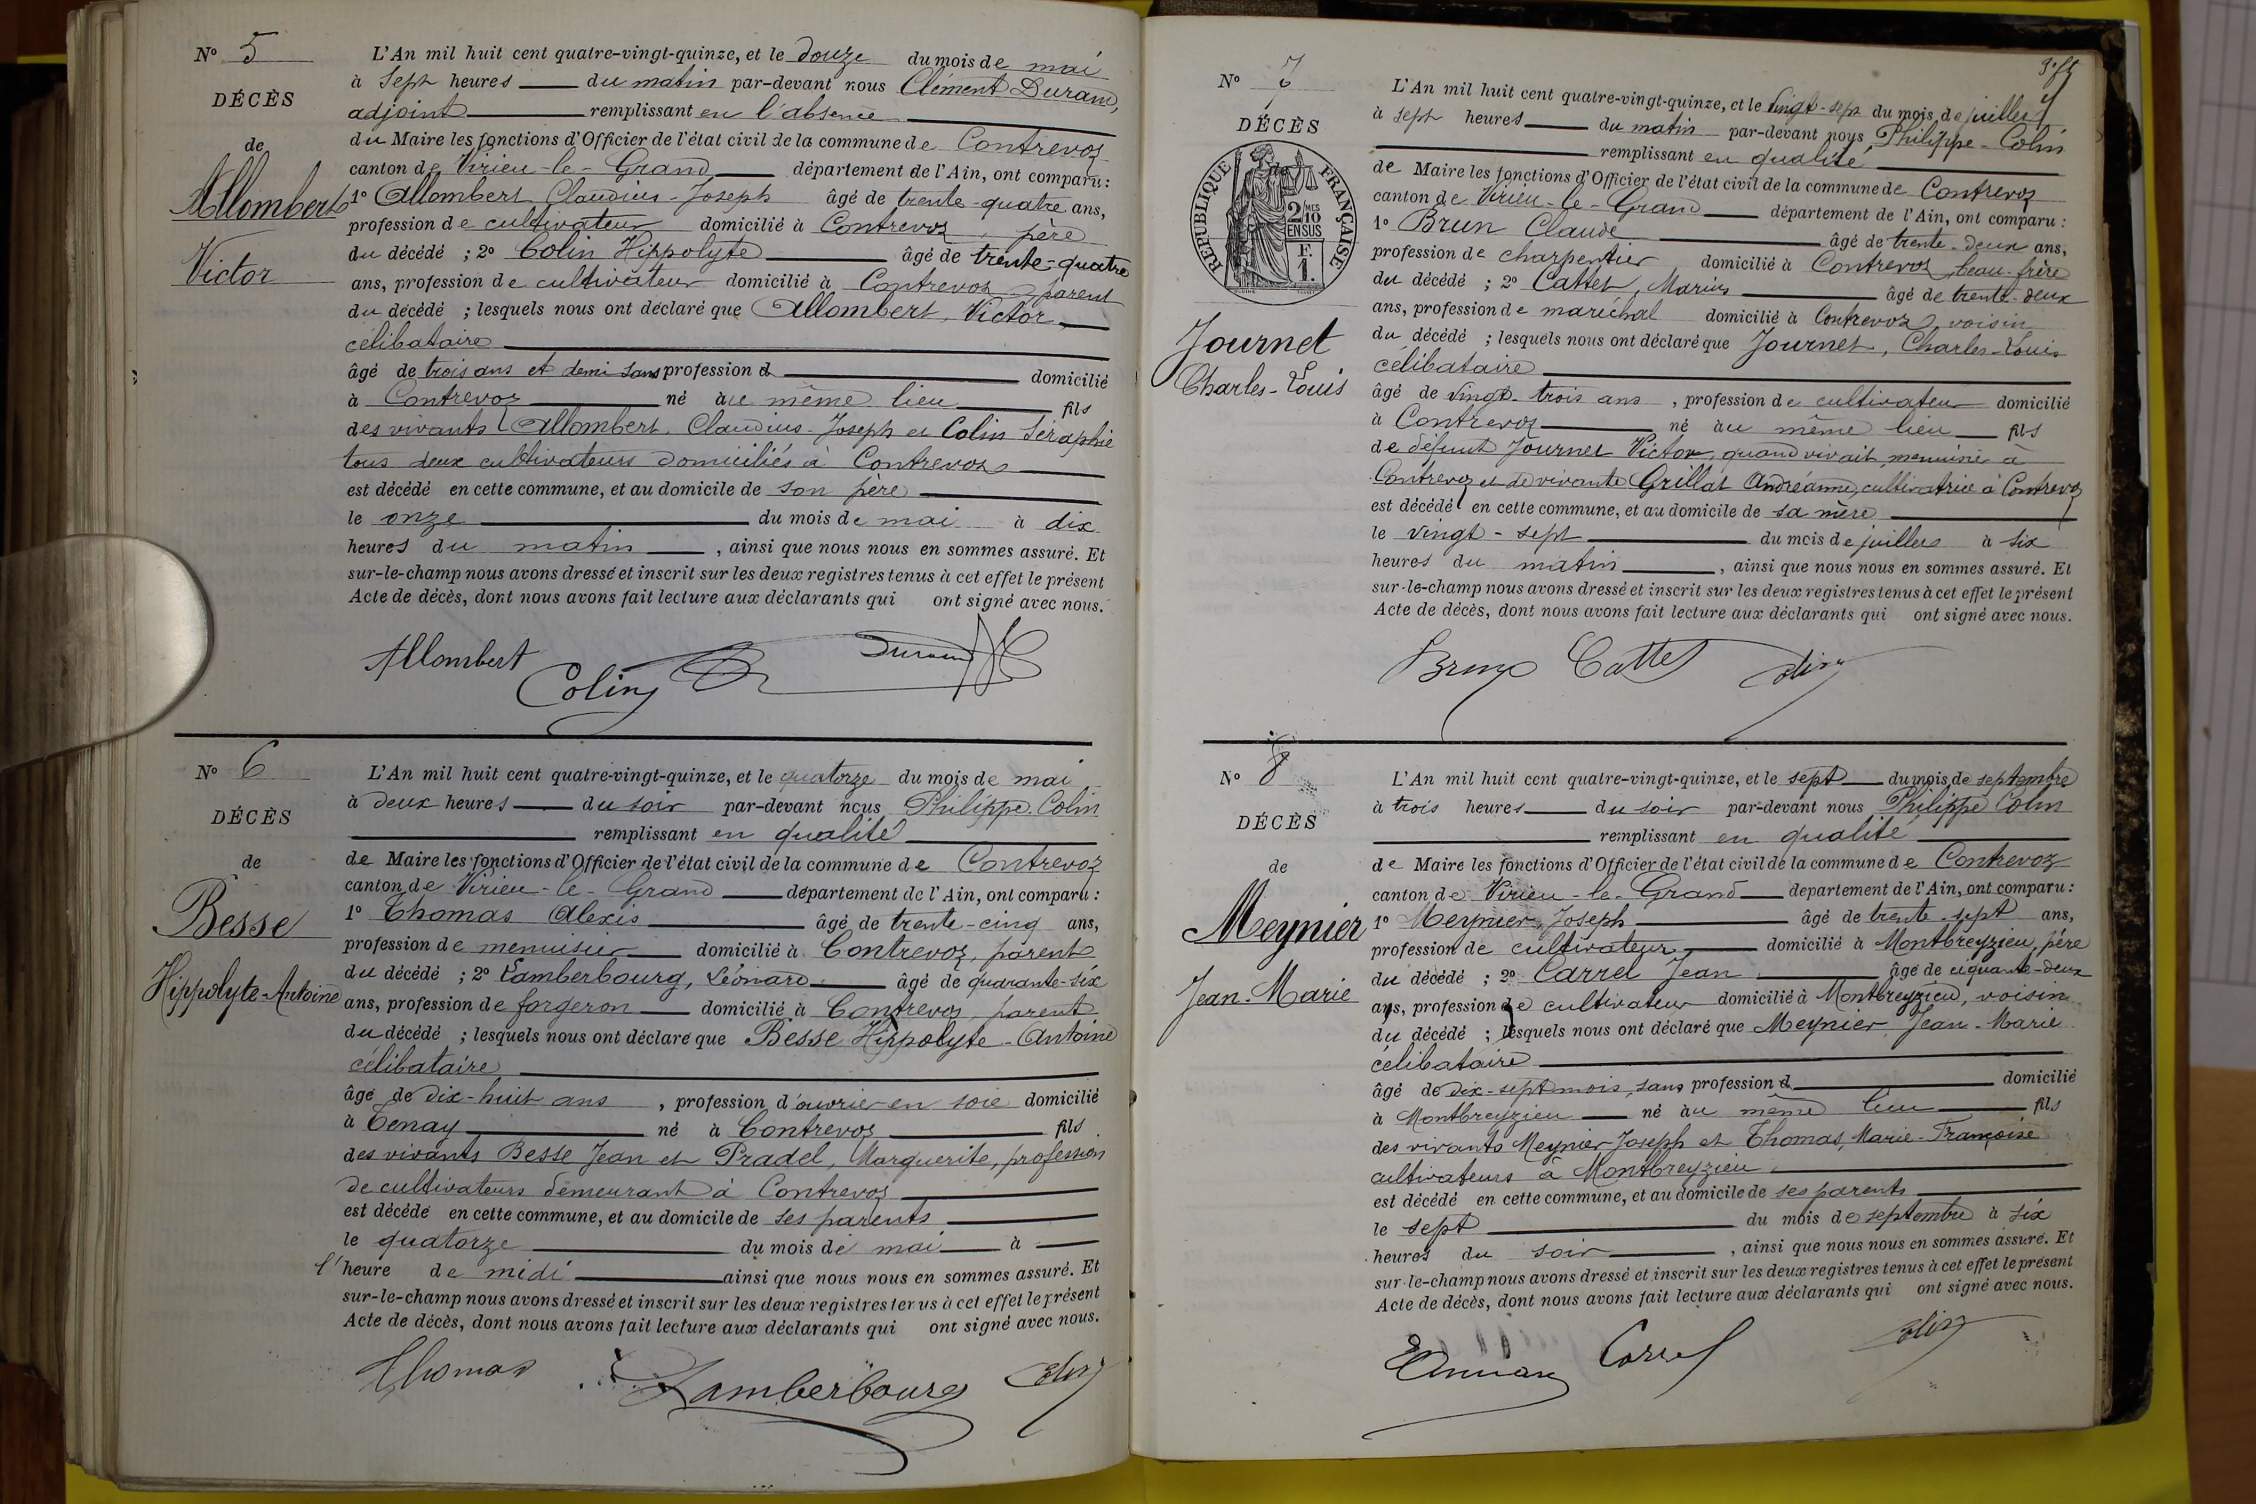 Nº 5
DÉCÈS
de
Allombert
Victor
L'An mil huit cent quatre-vingt-quinze, et le douze du mois de mai
à sept heures du matin par-devant nous Clément Durand,
adjoint remplissant en l'absence
du Maire les fonctions d'Officier de l'état civil de la commune de Contrevoz
canton de Virieu-le-Grand département de l'Ain, ont comparu :
1º Allombert Claudius-Joseph âgé de trente-quatre ans,
profession de cultivateur domicilié à Contrevoz, père
du décédé ; 2º Colin Hippolyte âgé de trente-quatre
ans, profession de cultivateur domicilié à Contrevoz parent
du décédé ; lesquels nous ont déclaré que Allombert, Victor
célibataire
âgé de trois ans et demi sans profession d domicilié
à Contrevoz né au même lieu fils
des vivants Allombert Claudius-Joseph et Colin Séraphie
tous deux cultivateurs domiciliés à Contrevoz
est décédé en cette commune, et au domicile de son père
le onze du mois de mai à dix
heures du matin , ainsi que nous nous en sommes assuré. Et
sur-le-champ nous avons dressé et inscrit sur les deux registres tenus à cet effet le présent
Acte de décès, dont nous avons fait lecture aux déclarants qui ont signé avec nous.
Allombert Colin Durand
Nº 6
DÉCÈS
de
Besse
Hippolyte-Antoine
L'An mil huit cent quatre-vingt-quinze, et le quatorze du mois de mai
à deux heures du soir par-devant nous Philippe Colin
remplissant en qualité
de Maire les fonctions d'Officier de l'état civil de la commune de Contrevoz
canton de Virieu-le-Grand département de l'Ain, ont comparu :
1º Thomas Alexis âgé de trente-cinq ans,
profession de menuisier domicilié à Contrevoz, parent
du décédé ; 2º Lamberbourg, Léonard âgé de quarante-six
ans, profession de forgeron domicilié à Contrevoz, parent
du décédé ; lesquels nous ont déclaré que Besse Hippolyte-Antoine
célibataire
âgé de dix-huit ans , profession d'ouvrier en soie domicilié
à Tenay né à Contrevoz fils
des vivants Besse Jean et Pradel, Marguerite, profession
de cultivateurs demeurant à Contrevoz
est décédé en cette commune, et au domicile de ses parents
le quatorze du mois de mai à
l'heure de midi ainsi que nous nous en sommes assuré. Et
sur-le-champ nous avons dressé et inscrit sur les deux registres tenus à cet effet le présent
Acte de décès, dont nous avons fait lecture aux déclarants qui ont signé avec nous.
Thomas Lamberbourg Colin
Nº 7
DÉCÈS
RÉPUBLIQUE FRANÇAISE
2 MES
10
EN SUS
F.
1.
Journet
Charles-Louis
L'An mil huit cent quatre-vingt-quinze, et le vingt-sept du mois de juillet
à sept heures du matin par-devant nous Philippe-Colin
remplissant en qualité
de Maire les fonctions d'Officier de l'état civil de la commune de Contrevoz
canton de Virieu-le-Grand département de l'Ain, ont comparu :
1º Brun Claude âgé de trente-deux ans,
profession de charpentier domicilié à Contrevoz, beau-frère
du décédé ; 2º Cattet, Marius âgé de trente-deux
ans, profession de maréchal domicilié à Contrevoz, voisin
du décédé ; lesquels nous ont déclaré que Journet, Charles-Louis
célibataire
âgé de vingt-trois ans , profession de cultivateur domicilié
à Contrevoz né au même lieu fils
de défunt Journet Victor, quand vivait menuisie à
Contrevoz et de vivante Grillat Andréanne, cultivatrice à Contrevoz
est décédé en cette commune, et au domicile de sa mère
le vingt-sept du mois de juillet à six
heures du matin , ainsi que nous nous en sommes assuré. Et
sur-le-champ nous avons dressé et inscrit sur les deux registres tenus à cet effet le présent
Acte de décès, dont nous avons fait lecture aux déclarants qui ont signé avec nous.
Brun Cattet Colin
Nº 8
DÉCÈS
de
Meynier
Jean-Marie
L'An mil huit cent quatre-vingt-quinze, et le sept du mois de septembre
à trois heures du soir par-devant nous Philippe Colin
remplissant en qualité
de Maire les fonctions d'Officier de l'état civil de la commune de Contrevoz
canton de Virieu-le-Grand département de l'Ain, ont comparu :
1º Meynier, Joseph âgé de trente-sept ans,
profession de cultivateur domicilié à Montbreyzieu, père
du décédé ; 2º Carrel Jean âgé de ciquante-deux
ans, profession de cultivateur domicilié à Montbreyzieu, voisin
du décédé ; lesquels nous ont déclaré que Meynier Jean-Marie
célibataire
âgé de dix-sept mois, sans profession d domicilié
à Montbreyzieu né au même lieu fils
des vivants Meynier Joseph et Thomas, Marie-Françoise
cultivateurs à Montbreyzieu
est décédé en cette commune, et au domicile de ses parents
le sept du mois de septembre à six
heures du soir , ainsi que nous nous en sommes assuré. Et
sur-le-champ nous avons dressé et inscrit sur les deux registres tenus à cet effet le présent
Acte de décès, dont nous avons fait lecture aux déclarants qui ont signé avec nous.
Carrel Colin